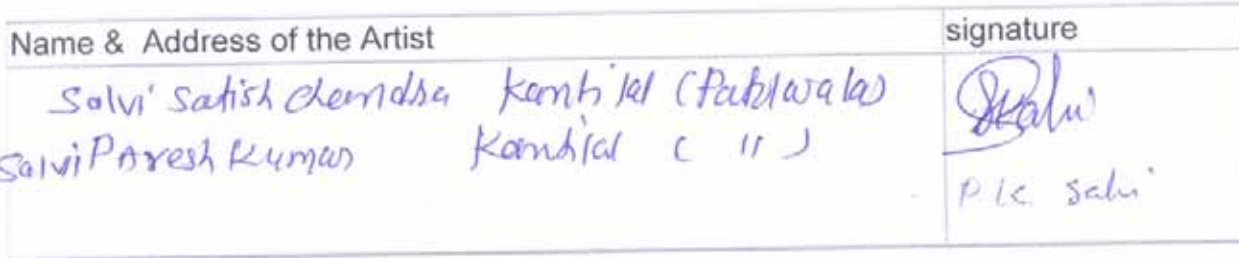 Name & Address of the Artist signature
Salvi Satish chandra Kantilal (Patolawala) SKSalvi
Salvi Paresh Kumar Kantilal ( 11 )
P.K. Salvi